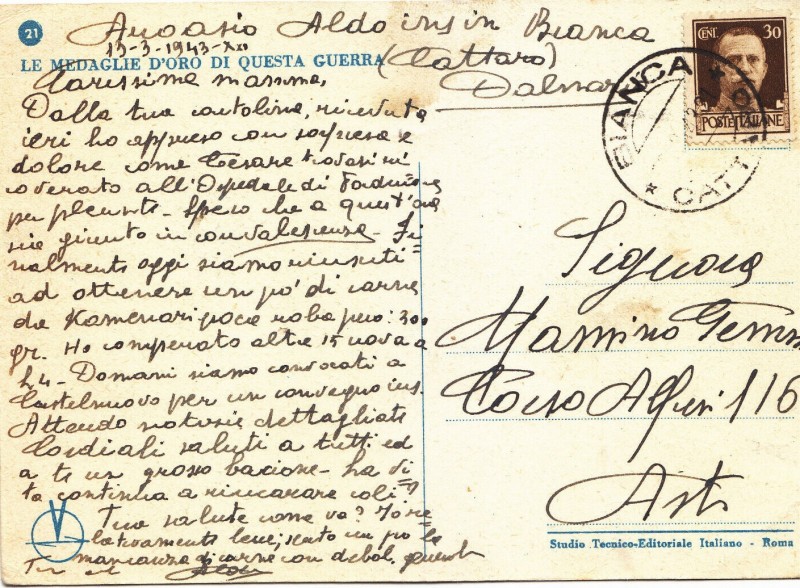 21
Aldo ins in Bianca
13-3-1943-XXI
(Cattaro)
LE MEDAGLIE D'ORO DI QUESTA GUERRA
Dalmazia
Carissima mamma,
Dalla tua cartolina, ricevuta
ieri ho appreso con sorpresa e
dolore come Cesare trovasi ri
coverato all'Ospedale di
per pleurite - Spero che a quest'ora
sia giunto in convalescenza - Fi=
nalmente oggi siamo riusciti
ad ottenere un po' di carne
da Kamenari poca roba però: 300
gr. Ho comperato altre 15 uova a
L 4 - Domani siamo convocati a
Castelnuovo per un convegno ins.
Attendo notizie dettagliate
Cordiali saluti a tutti ed
a te un grosso bacione -
continua a rincarare così?
Tua salute come va? Io re
lativamente bene; sento un po' la
mancanza di carne con debol.
Tuo Aldo
BIANCA
CATT
CENT. 30
POSTE ITALIANE
Signora
Massino Gemma
Corso Alfieri 116
Asti
Studio Tecnico-Editoriale Italiano - Roma